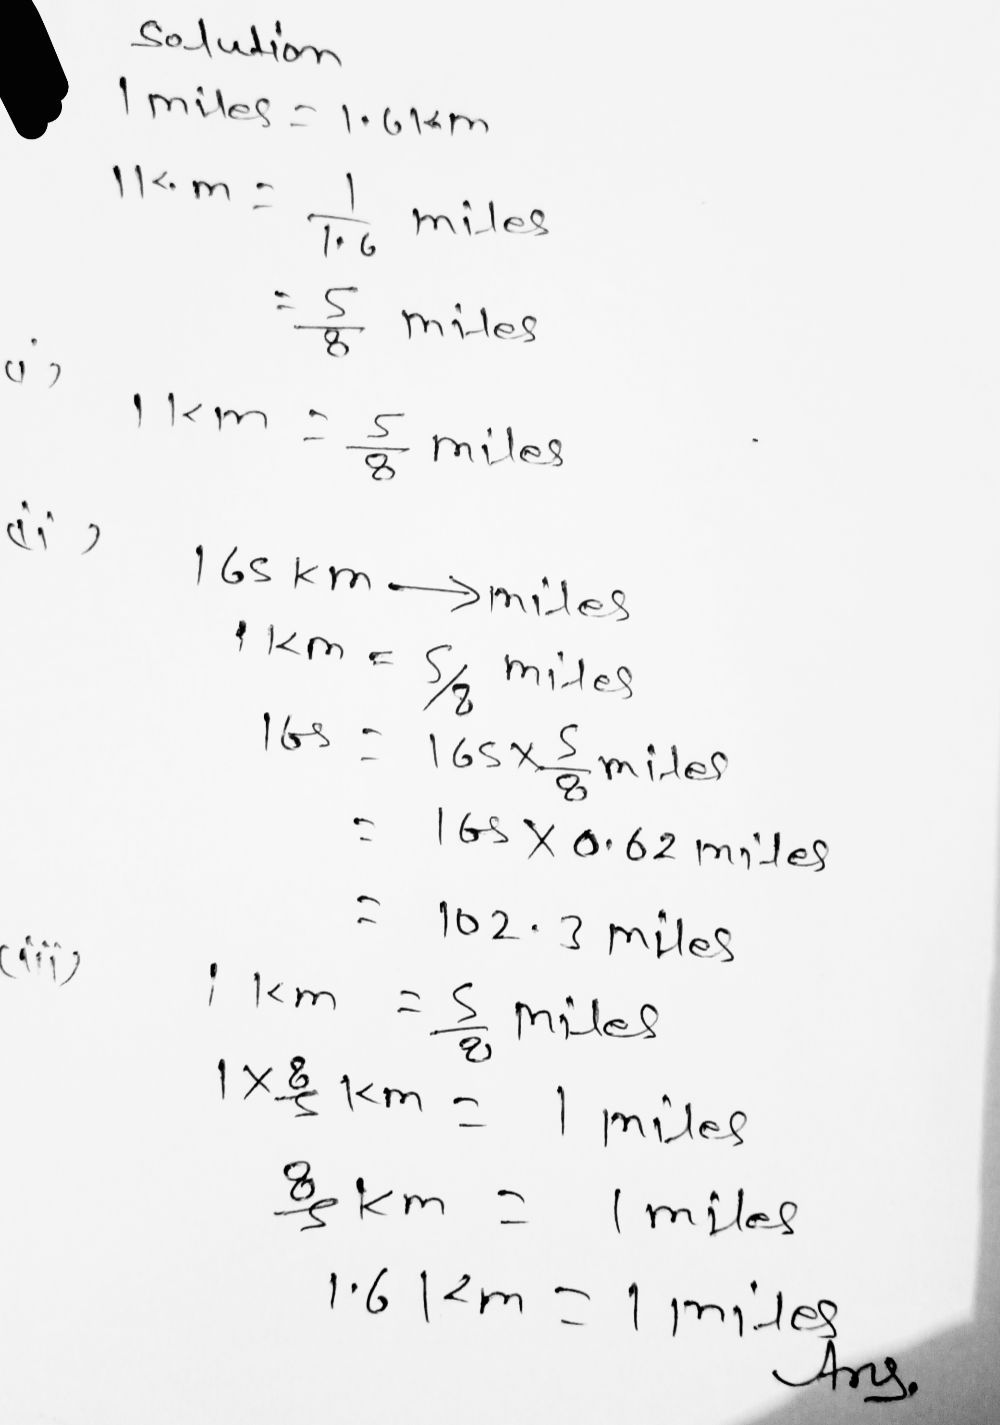 Solution
1 miles = 1.6 km
1 k.m = 1/1.6 miles
= 5/8 miles
(i)
1 km = 5/8 miles
(ii)
165 km → miles
1 km = 5/8 miles
165 = 165 × 5/8 miles
= 165 × 0.62 miles
= 102.3 miles
(iii)
1 km = 5/8 miles
1 × 8/5 km = 1 miles
8/5 km = 1 miles
1.6 km = 1 miles
Ans.